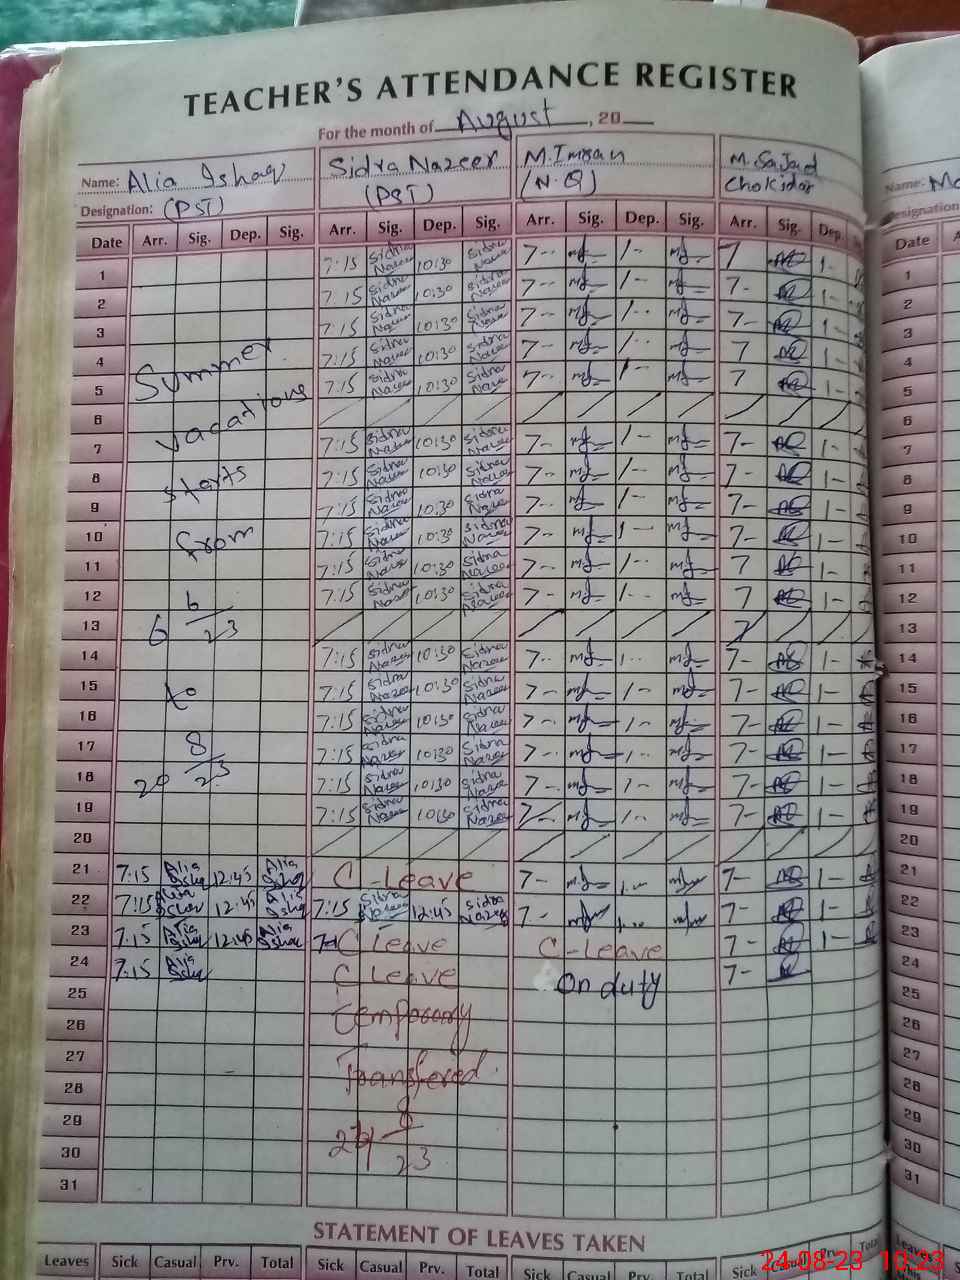 TEACHER'S ATTENDANCE REGISTER
For the month of August, 20
Name: Alia Ishaq Sidra Nazeer M. Imran M. Sajad
Designation: (PST) (PST) (N.Q) Chokidar
Date Arr. Sig. Dep. Sig. Arr. Sig. Dep. Sig. Arr. Sig. Dep. Sig. Arr. Sig. Dep.
1 7:15 Sidra Nazeer 10:30 Sidra Nazeer 7-- 1-- 7 1-
2 7:15 Sidra Nazeer 10:30 Sidra Nazeer 7-- 1-- 7- 1-
3 7:15 Sidra Nazeer 10:30 Sidra Nazeer 7-- 1-- 7- 1-
4 7:15 Sidra Nazeer 10:30 Sidra Nazeer 7-- 1-- 7 1-
5 7:15 Sidra Nazeer 10:30 Sidra Nazeer 7-- 1-- 7 1-
6
7 7:15 Sidra Nazeer 10:30 Sidra Nazeer 7-- 1-- 7- 1-
8 7:15 Sidra Nazeer 10:30 Sidra Nazeer 7-- 1-- 7- 1-
9 7:15 Sidra Nazeer 10:30 Sidra Nazeer 7-- 1-- 7- 1-
10 7:15 Sidra Nazeer 10:30 Sidra Nazeer 7-- 1-- 7- 1-
11 7:15 Sidra Nazeer 10:30 Sidra Nazeer 7-- 1-- 7 1-
12 7:15 Sidra Nazeer 10:30 Sidra Nazeer 7-- 1-- 7 1-
13
14 7:15 Sidra Nazeer 10:30 Sidra Nazeer 7-- 1-- 7- 1-
15 7:15 Sidra Nazeer 10:30 Sidra Nazeer 7-- 1-- 7- 1-
16 7:15 Sidra Nazeer 10:30 Sidra Nazeer 7-- 1-- 7- 1-
17 7:15 Sidra Nazeer 10:30 Sidra Nazeer 7-- 1-- 7- 1-
18 7:15 Sidra Nazeer 10:30 Sidra Nazeer 7-- 1-- 7- 1-
19 7:15 Sidra Nazeer 10:30 Sidra Nazeer 7-- 1-- 7- 1-
20
Summer
vacations
starts
from
6 6/23
to
20 8/23
21 7:15 Alia Ishaq 12:45 Alia Ishaq C-Leave 7- 1-- 7- 1-
22 7:15 Alia Ishaq 12:45 Alia Ishaq 7:15 Sidra Nazeer 12:45 Sidra Nazeer 7- 1-- 7- 1-
23 7:15 Alia Ishaq 12:45 Alia Ishaq C Leave C-Leave 7- 1-
24 7:15 Alia Ishaq C Leave On duty 7-
25 Temporary
26
27 Transfered
28
29 8/23
30
31
STATEMENT OF LEAVES TAKEN
Leaves Sick Casual Prv. Total Sick Casual Prv. Total Sick Casual Prv. Total Sick Casual Prv. Total
Name:
Designation
Date
1
2
3
4
5
6
7
8
9
10
11
12
13
14
15
16
17
18
19
20
21
22
23
24
25
26
27
28
29
30
31
Leaves
24-08-23 10:23